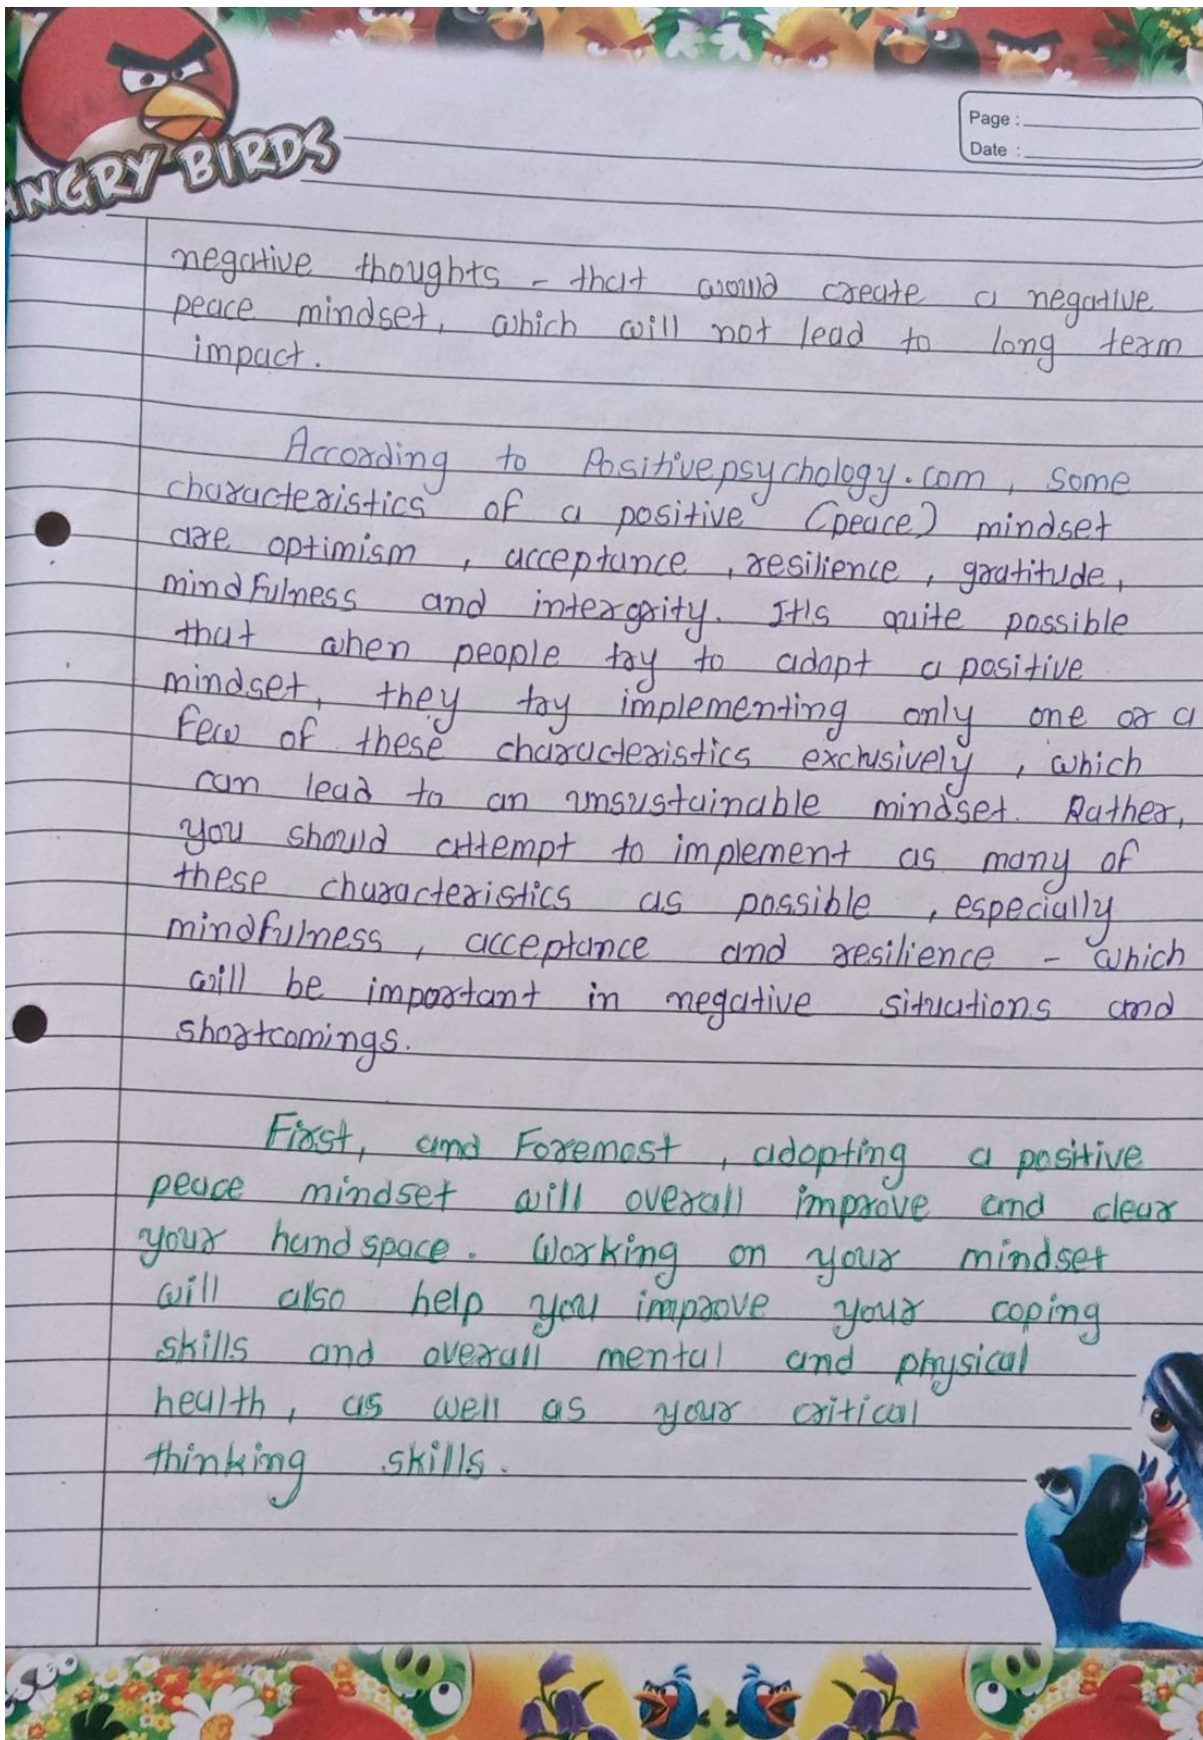 ANGRY BIRDS
Page :
Date :
negative thoughts - that would create a negative
peace mindset, which will not lead to long term
impact.
According to Positivepsychology.com, some
characteristics of a positive (peace) mindset
are optimism, acceptance, resilience, gratitude,
mindfulness and intergrity. It's quite possible
that when people try to adopt a positive
mindset, they try implementing only one or a
few of these characteristics exclusively, which
can lead to an unsustainable mindset. Rather,
you should attempt to implement as many of
these characteristics as possible, especially
mindfulness, acceptance and resilience - which
will be important in negative situations and
shortcomings.
First, and Foremost, adopting a positive
peace mindset will overall improve and clear
your handspace. Working on your mindset
will also help you improve your coping
skills and overall mental and physical
health, as well as your critical
thinking skills.